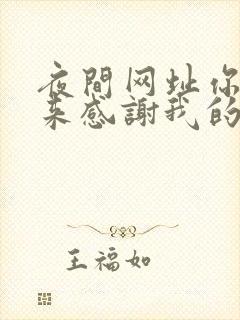 夜間网址你
来感謝我的
王福如